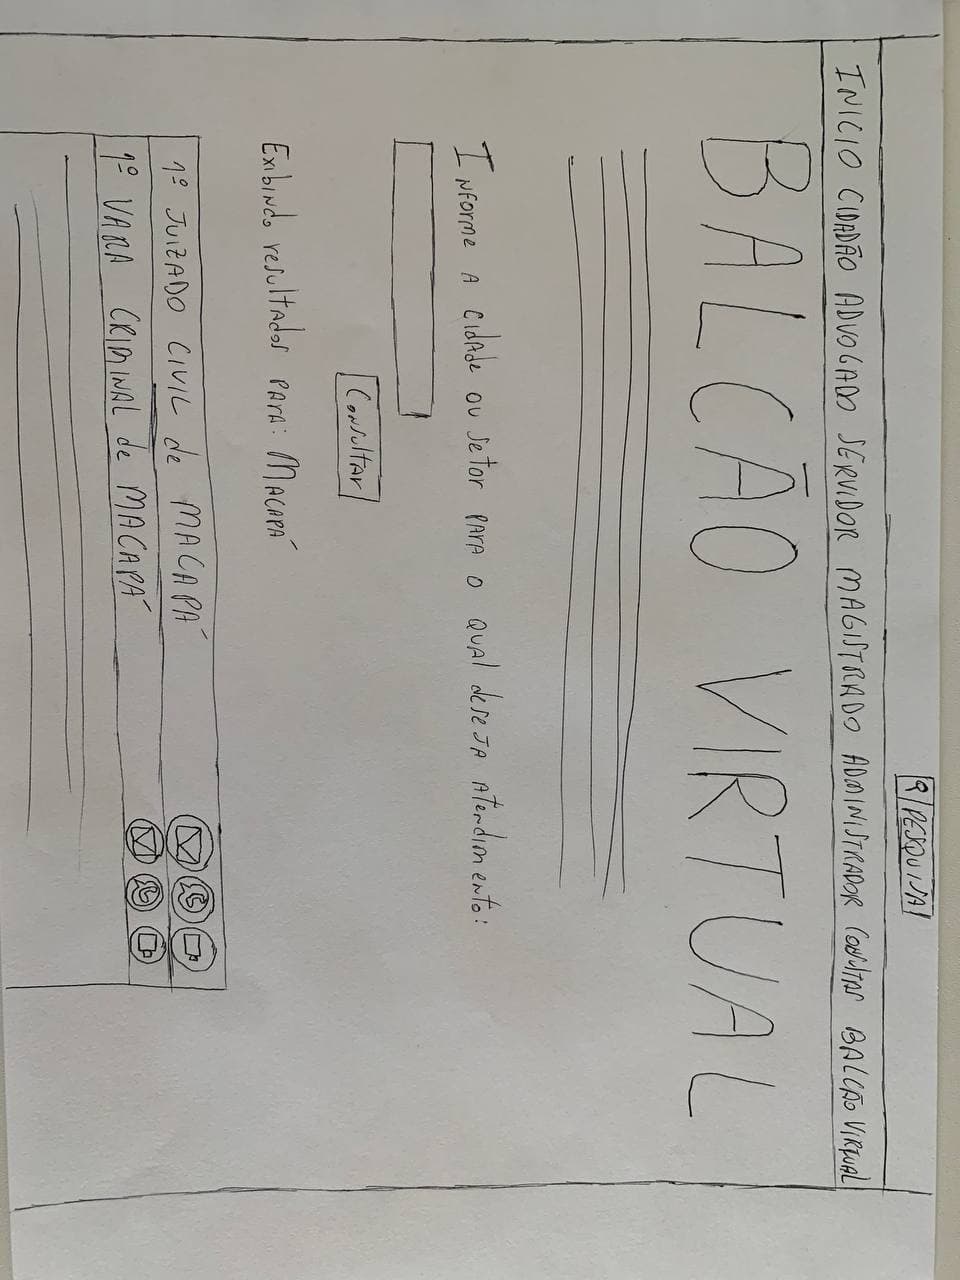 PESQUISA
INICIO CIDADÃO ADVOGADO SERVIDOR MAGISTRADO ADMINISTRADOR CONSULTAS BALCÃO VIRTUAL
BALCÃO VIRTUAL
Informe a cidade ou setor para o qual deseja atendimento:
Consultar
Exibindo resultados para: Macapá
1º JUIZADO CIVIL de MACAPÁ
1º VARA CRIMINAL de MACAPÁ